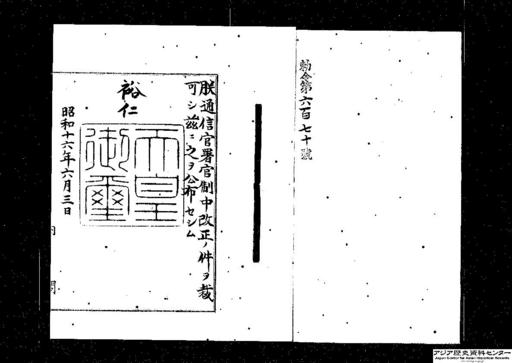 勅令第六百七十號
朕通信官署官制中改正ノ件ヲ裁
可シ茲ニ之ヲ公布セシム
裕仁
天皇
御璽
昭和十六年六月三日
内閣
アジア歴史資料センター
Japan Center for Asian Historical Records